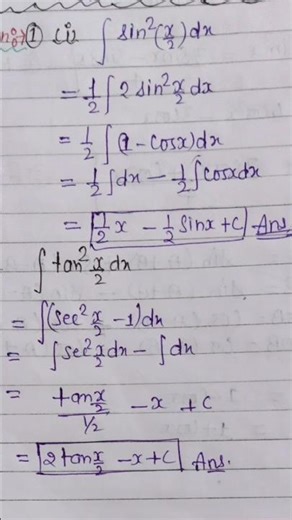 ① (i) ∫ sin²(x/2) dx
= 1/2 ∫ 2 sin² x/2 dx
= 1/2 ∫ (1 - cosx) dx
= 1/2 ∫ dx - 1/2 ∫ cosx dx
= 1/2 x - 1/2 sinx + C Ans
∫ tan² x/2 dx
= ∫ (sec² x/2 - 1) dx
= ∫ sec² x/2 dx - ∫ dx
= tan x/2 / 1/2 - x + C
= 2 tan x/2 - x + C Ans.